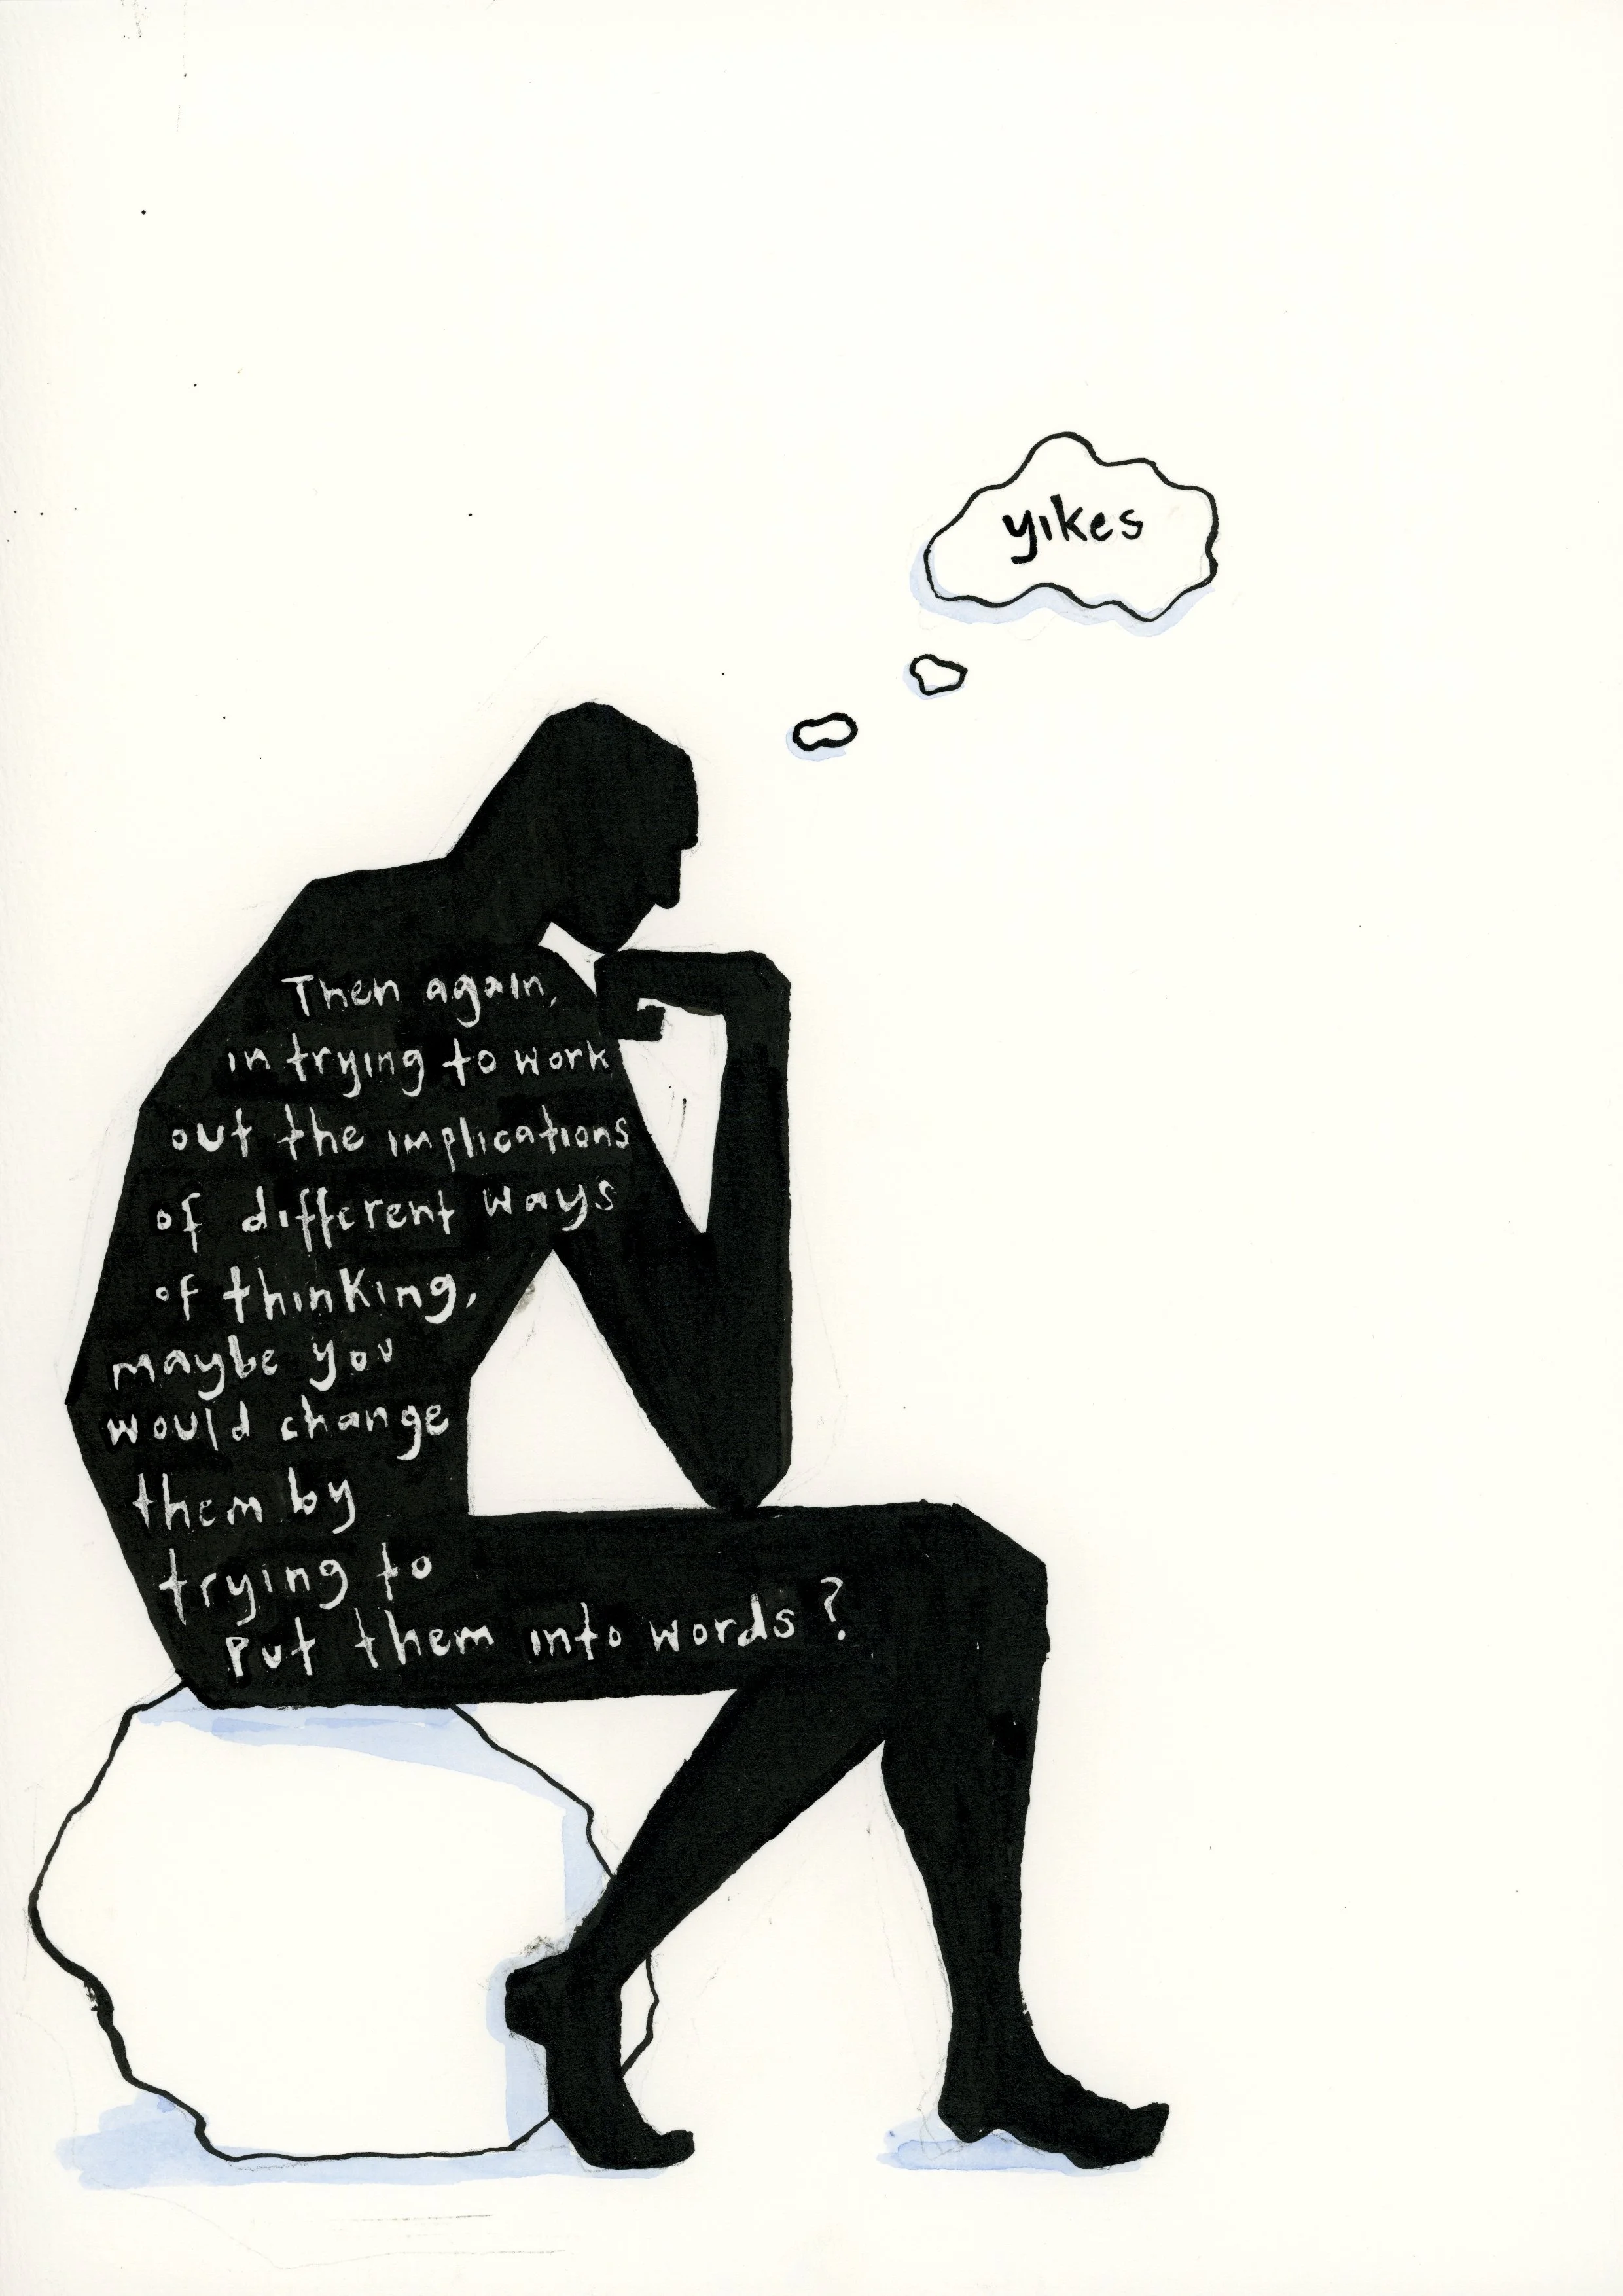 yikes
Then again,
in trying to work
out the implications
of different ways
of thinking,
maybe you
would change
them by
trying to
put them into words?